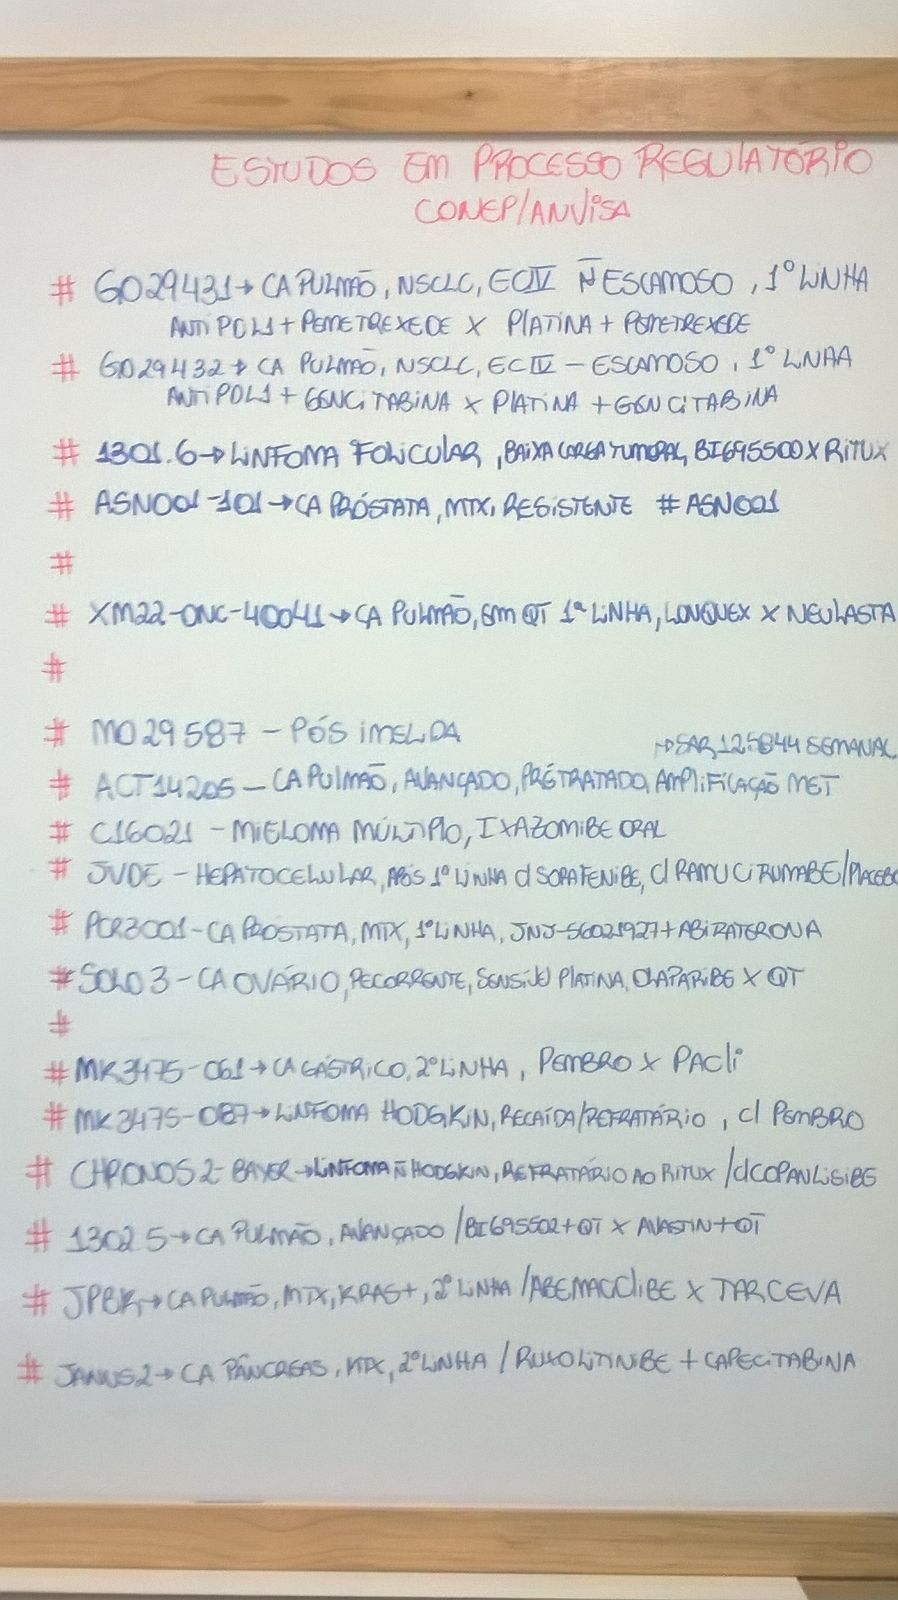 ESTUDOS EM PROCESSO REGULATÓRIO
CONEP/ANVISA
# GO29431→ CA PULMÃO, NSCLC, ECIV Ñ ESCAMOSO, 1º LINHA
ANTI PDL1 + PEMETREXEDE X PLATINA + PEMETREXEDE
# GO29432→ CA PULMÃO, NSCLC, ECIV - ESCAMOSO, 1º LINHA
ANTI PDL1 + GENCITABINA X PLATINA + GENCITABINA
# 1301.6→ LINFOMA FOLICULAR, BAIXA CARGA TUMORAL, BI695500 X RITUX
# ASN001-101→ CA PRÓSTATA, MTX, RESISTENTE # ASN001
#
# XM22-ONC-40041→ CA PULMÃO, EM QT 1ª LINHA, LONQUEX X NEULASTA
#
# MO29587 - PÓS IMELDA
→ SAR125844 SEMANAL
# ACT14205 - CA PULMÃO, AVANÇADO, PRÉTRATADO, AMPLIFICAÇÃO MET
# C16021 - MIELOMA MÚLTIPLO, IXAZOMIBE ORAL
# JVDE - HEPATOCELULAR, APÓS 1º LINHA C/ SORAFENIBE, C/ RAMUCIRUMABE/PLACEBO
# PCR3001 - CA PRÓSTATA, MTX, 1º LINHA, JNJ-56021927 + ABIRATERONA
# SOLO3 - CA OVÁRIO, RECORRENTE, SENSÍVEL PLATINA, OLAPARIBE X QT
#
# MK3475-061→ CA GÁSTRICO, 2º LINHA, PEMBRO X PACLI
# MK3475-087→ LINFOMA HODGKIN, RECAÍDA/REFRATÁRIO, C/ PEMBRO
# CHRONOS2- BAYER→ LINFOMA Ñ HODGKIN, REFRATÁRIO AO RITUX / C/ COPANLISIBE
# 1302.5→ CA PULMÃO, AVANÇADO / BI695502 + QT X AVASTIN + QT
# JPBK→ CA PULMÃO, MTX, KRAS+, 2º LINHA / ABEMACICLIBE X TARCEVA
# JANUS2→ CA PÂNCREAS, MTX, 2º LINHA / RUXOLITINIBE + CAPECITABINA